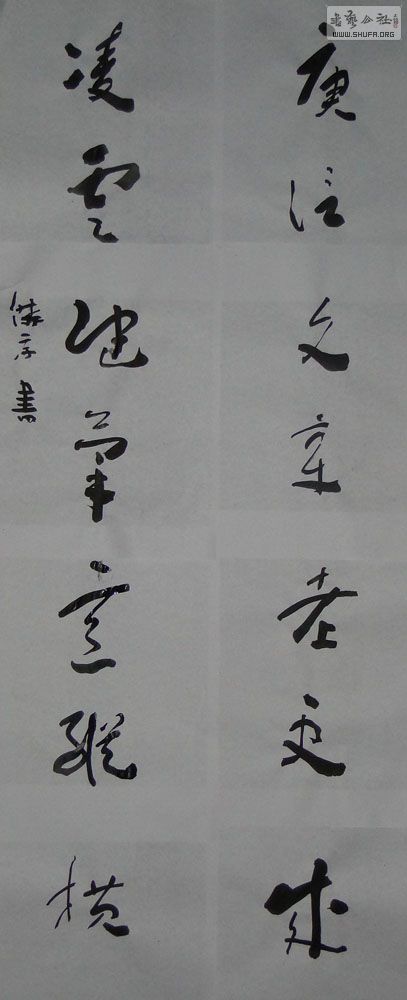 庾信文章老更成
凌雲健筆意縱橫
書
書藝公社
WWW.SHUFA.ORG